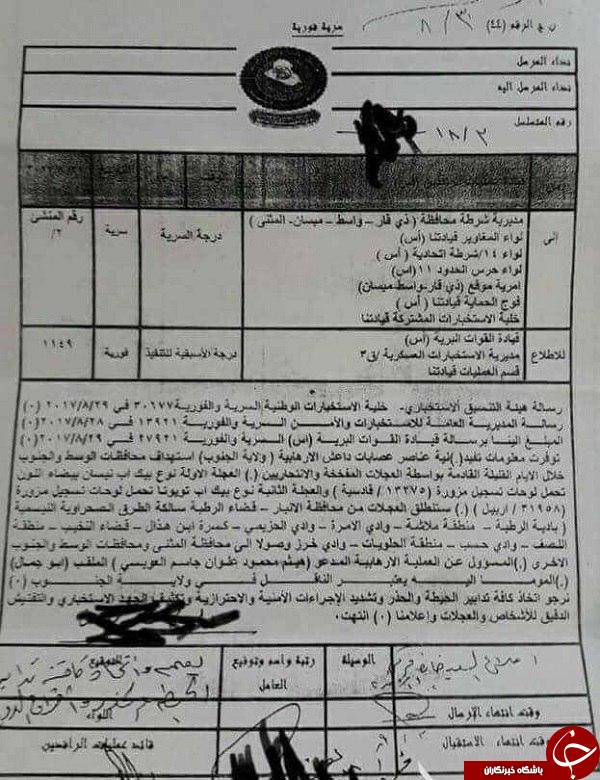 ن ج الرقم (٤٤)
سرية فورية
٨/٣١
نداء المرسل
نداء المرسل اليه
رقم المتسلسل
١٨/٣
الى
مديرية شرطة محافظة ( ذي قار – واسط – ميسان- المثنى )
لواء المغاوير قيادتنا (أس)
لواء ١٤/شرطة اتحادية ( أس )
لواء حرس الحدود ١١(اس)
امرية موقع (ذي قار-واسط-ميسان)
فوج الحماية قيادتنا ( أس )
خلية الاستخبارات المشتركة قيادتنا
درجة السرية
سرية
رقم المنشئ
/٢
للاطلاع
قيادة القوات البرية (أس)
مديرية الاستخبارات العسكرية /ق٣
قسم العمليات قيادتنا
درجة الأسبقية للتنفيذ
فورية
١١٤٩
رسالة هيئة التنسيق الاستخباري- خلية الاستخبارات الوطنية السرية والفورية ٣٠٦٧٧ في ٢٠١٧/٨/٢٩ (٠)
رسالة المديرية العامة للاستخبارات والأمن السرية والفورية ١٣٩٢١ في ٢٠١٧/٨/٢٨ (٠)
المبلغ الينا برسالة قيادة القوات البرية (اس) السرية والفورية ٢٧٩٢١ في ٢٠١٧/٨/٢٩ (٠)
توفرت معلومات تفيد(.)نية عناصر عصابات داعش الارهابية ( ولاية الجنوب) استهداف محافظات الوسط والجنوب
خلال الايام القليلة القادمة بواسطة العجلات المفخخة والانتحاريين (.) العجلة الاولة نوع بيك اب نيسان بيضاء اللون
تحمل لوحات تسجيل مزورة (١٣٢٧٥/ قادسية ) والعجلة الثانية نوع بيك اب تويوتا تحمل لوحات تسجيل مزورة
(٣١٩٥٨/ اربيل ) (.) ستنطلق العجلات من محافظة الانبار – قضاء الرطبة سالكة الطرق الصحراوية النيسمية
( بادية الرطبة – منطقة ملاشة – وادي الامرة – وادي الحزيمي – كسرة ابن هذال – قضاء النخيب – منطقة
اللصف – وادي حسب – منطقة الحلويات – وادي خرز وصولا الى محافظة المثنى ومحافظات الوسط والجنوب
الاخرى (.)المسؤول عن العملية الارهابية المدعو (هيثم محمود علوان جاسم العويسي ) الملقب (ابو جمال)
(.)المومأ اليه يعتبر الناقل في ولاية الجنوب (٠)
نرجو اتخاذ كافة تدابير الحيطة والحذر وتشديد الإجراءات الأمنية والاحترازية وتكثيف الجهد الاستخباري والتفتيش
الدقيق للأشخاص والعجلات وإعلامنا (٠) انتهت.
الوسيلة
رتبة واسم وتوقيع
العامل
التوقيع
وقت انتهاء الإرسال
اللواء
وقت انتهاء الاستقبال
قائد عمليات الرافدين
باشگاه خبرنگاران